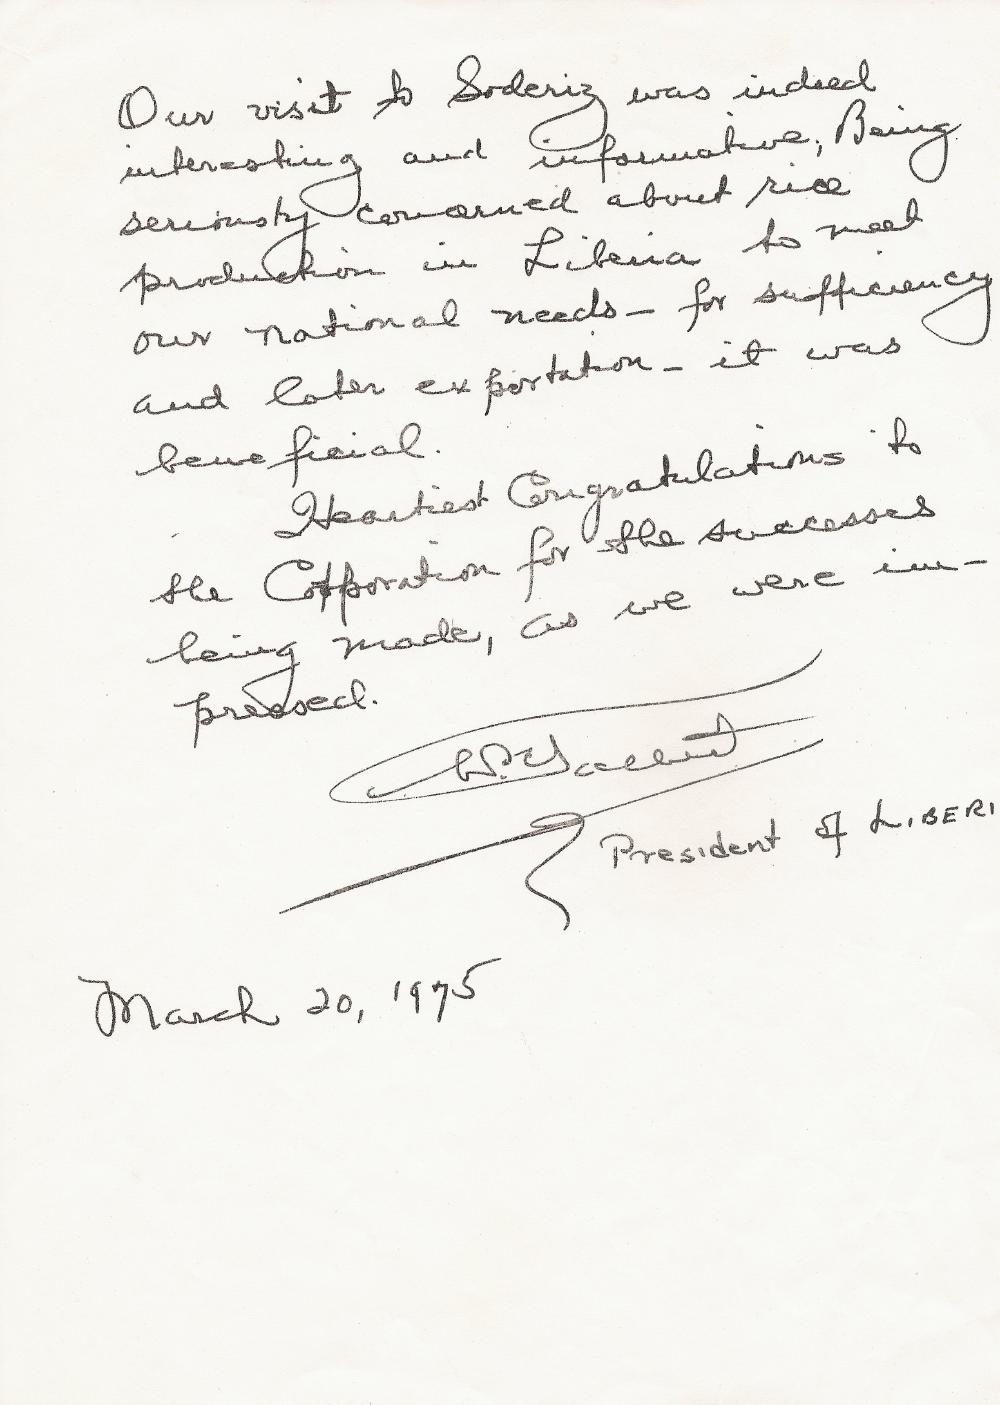 Our visit to Soderiz was indeed
interesting and informative, Being
seriously concerned about rice
production in Liberia to meet
our national needs – for sufficiency
and later exportation – it was
beneficial.
Heartiest Congratulations to
the Corporation for the successes
being made, as we were im-
pressed.
President of LIBERI
March 20, 1975